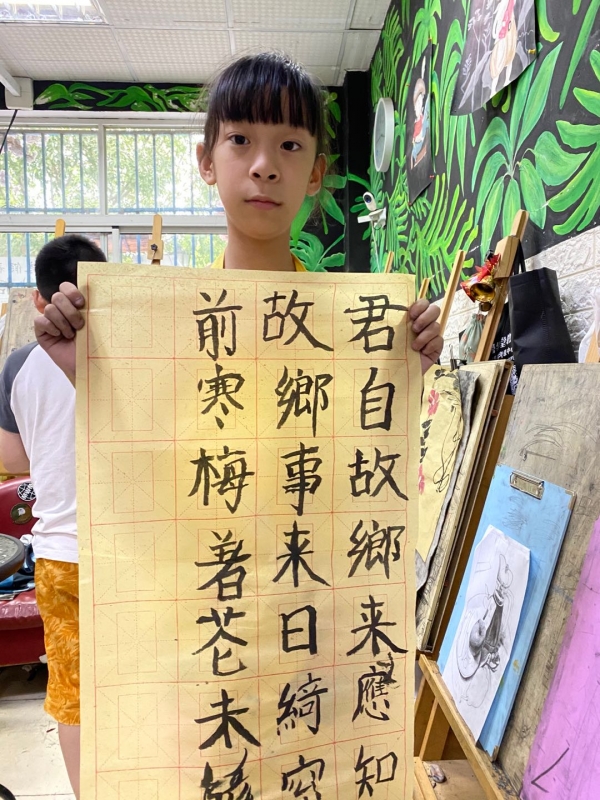 君自故鄉来應知
故鄉事来日綺窗
前寒梅著花未